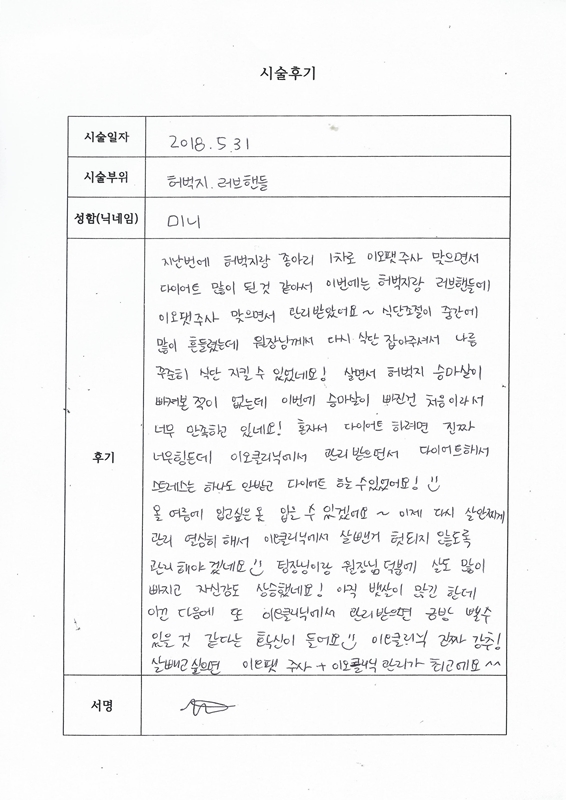 시술후기
시술일자
2018.5.31
시술부위
허벅지.러브핸들
성함(닉네임)
미니
후기
지난번에 허벅지랑 종아리 1차로 이오팻주사 맞으면서
다이어트 많이 된것 같아서 이번에는 허벅지랑 러브핸들에
이오팻주사 맞으면서 관리받았어요~ 식단조절이 중간에
많이 흔들렸는데 원장님께서 다시 식단 잡아주셔서 나름
꾸준히 식단 지킬 수 있었네요! 살면서 허벅지 승마살이
빠져본 적이 없는데 이번에 승마살이 빠진건 처음이라서
너무 만족하고 있네요! 혼자서 다이어트 하려면 진짜
너무힘든데 이오클리닉에서 관리 받으면서 다이어트해서
스트레스는 하나도 안받고 다이어트 할 수있었어요!
올 여름에 입고싶은 옷 입을 수 있겠어요~ 이제 다시 살안찌게
관리 열심히 해서 이오클리닉에서 살뺀거 헛되지 않도록
관리 해야 겠네요 팀장님이랑 원장님 덕분에 살도 많이
빠지고 자신감도 상승했네요! 아직 뱃살이 많긴 한데
이건 다음에 또 이오클리닉에서 관리받으면 금방 뺄수
있을 것 같다는 확신이 들어요 이오클리닉 진짜 강추!
살빼고 싶으면 이오팻 주사 + 이오클리닉 관리가 최고에요^^
서명